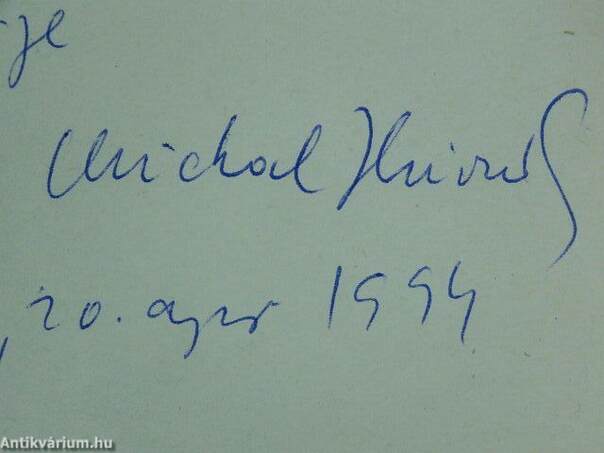 je
Michal Hivriš
, 20. apr 1994
Antikvárium.hu